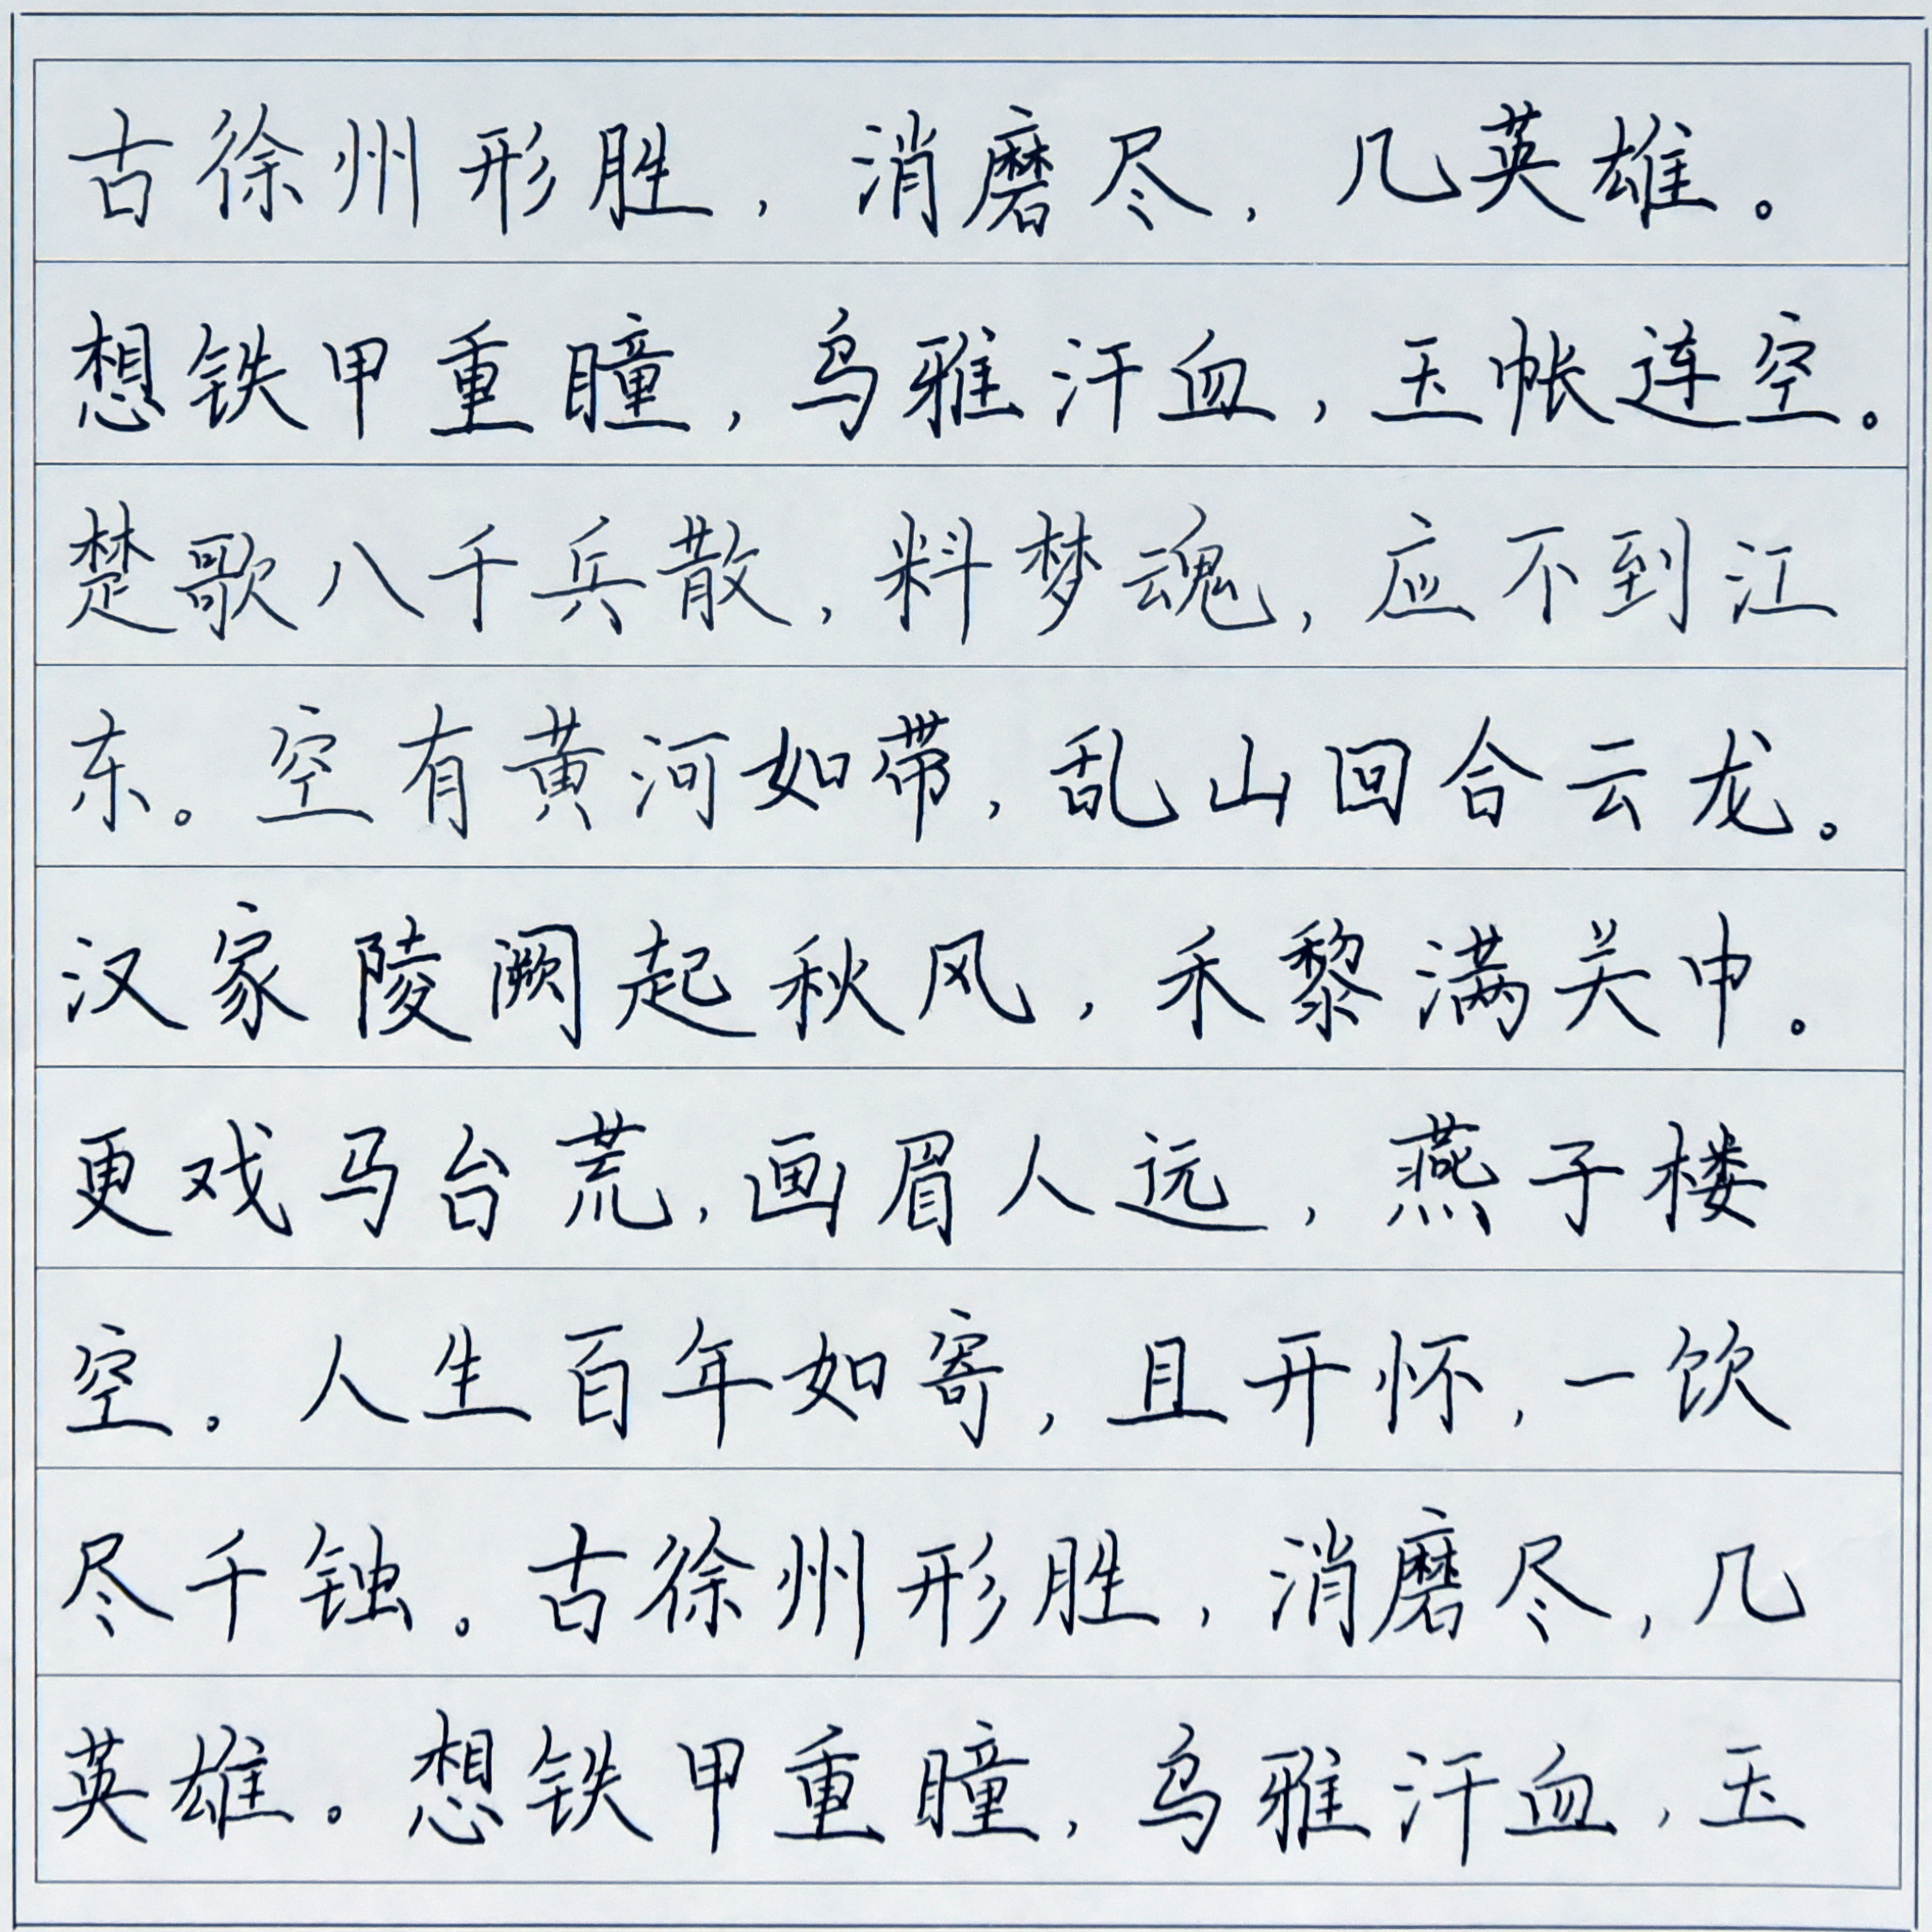 古徐州形胜，消磨尽，几英雄。
想铁甲重瞳，乌雅汗血，玉帐连空。
楚歌八千兵散，料梦魂，应不到江
东。空有黄河如带，乱山回合云龙。
汉家陵阙起秋风，禾黎满关中。
更戏马台荒，画眉人远，燕子楼
空。人生百年如寄，且开怀，一饮
尽千蚀。古徐州形胜，消磨尽，几
英雄。想铁甲重瞳，乌雅汗血，玉